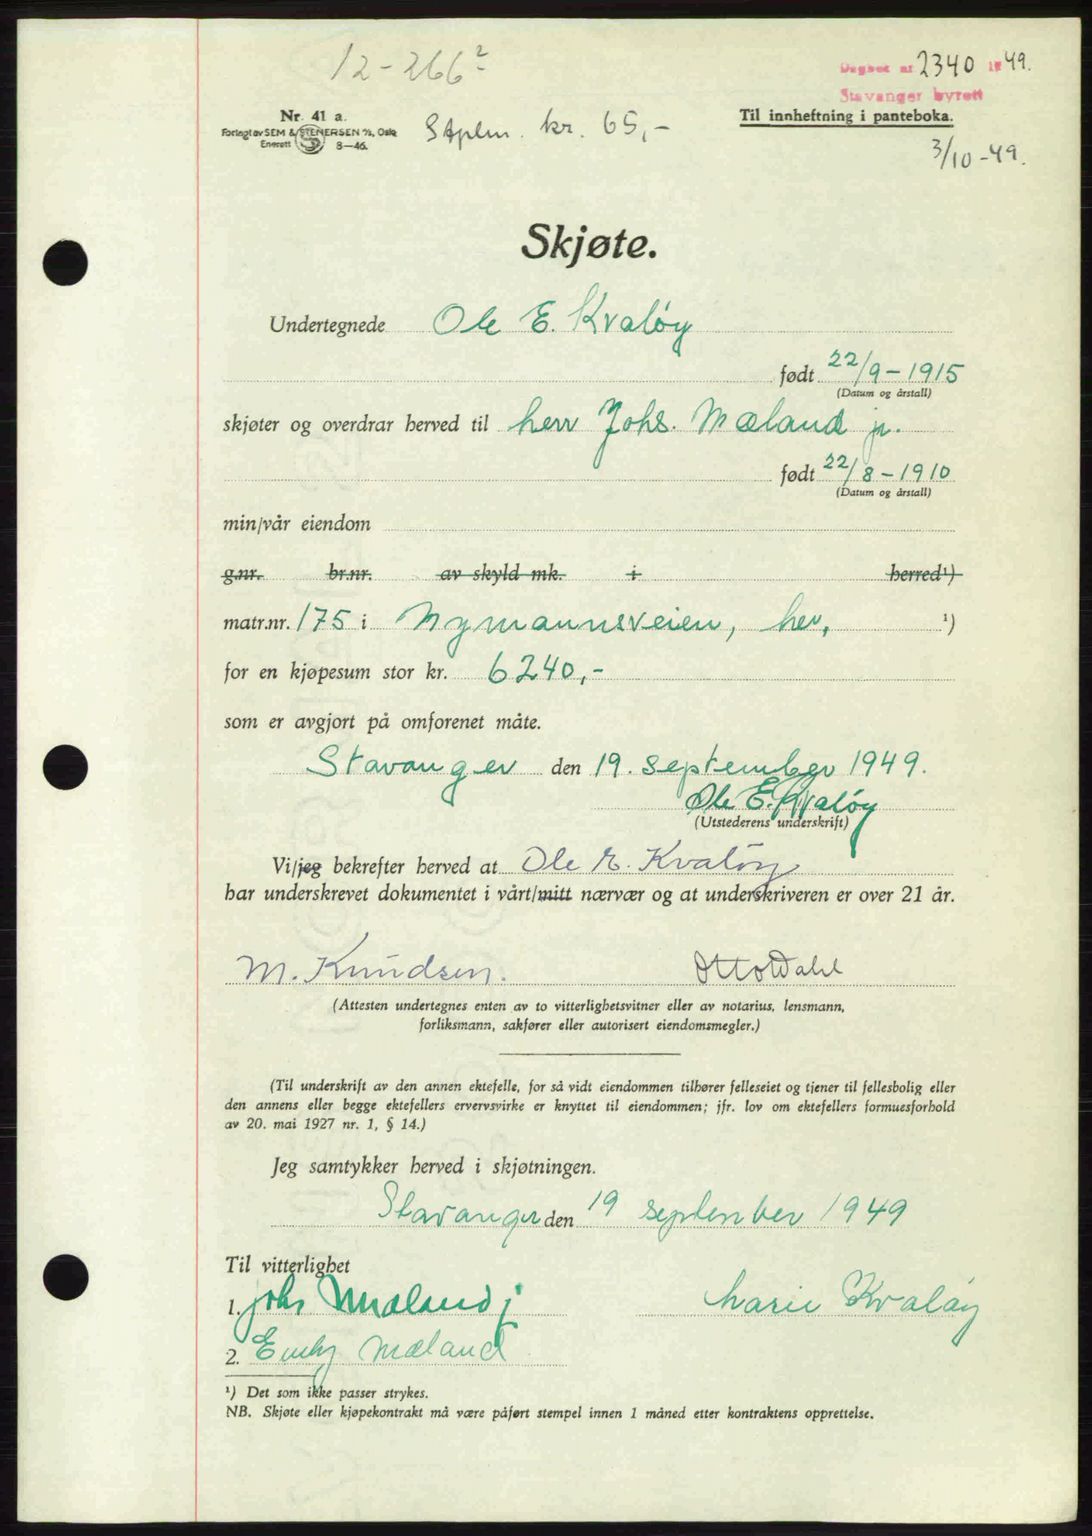 12-266²
Dagbok nr 2340 1949.
Stavanger byrett
Nr. 41 a.
Forlagt av SEM & STENERSEN A/S, Oslo
Enerett 8—46.
Stplm. kr. 65,-
Til innheftning i panteboka.
3/10-49.
Skjøte.
Undertegnede Ole E. Kvaløy
født 22/9-1915
(Datum og årstall)
skjøter og overdrar herved til herr Johs. Mæland jr.
født 22/8-1910
(Datum og årstall)
min/vår eiendom
g.nr. br.nr. av skyld mk. i herred¹)
matr.nr. 175 i Nymannsveien, her, ¹)
for en kjøpesum stor kr. 6240,-
som er avgjort på omforenet måte.
Stavanger den 19. september 1949.
Ole E. Kvaløy
(Utstederens underskrift)
Vi/jeg bekrefter herved at Ole E. Kvaløy
har underskrevet dokumentet i vårt/mitt nærvær og at underskriveren er over 21 år.
M. Knudsen. Otto Dahl
(Attesten undertegnes enten av to vitterlighetsvitner eller av notarius, lensmann,
forliksmann, sakfører eller autorisert eiendomsmegler.)
(Til underskrift av den annen ektefelle, for så vidt eiendommen tilhører felleseiet og tjener til fellesbolig eller
den annens eller begge ektefellers ervervsvirke er knyttet til eiendommen; jfr. lov om ektefellers formuesforhold
av 20. mai 1927 nr. 1, § 14.)
Jeg samtykker herved i skjøtningen.
Stavanger den 19 september 1949
Til vitterlighet
1. Johs Mæland j Marie Kvaløy
2. Emly Mæland
¹) Det som ikke passer strykes.
NB. Skjøte eller kjøpekontrakt må være påført stempel innen 1 måned etter kontraktens opprettelse.